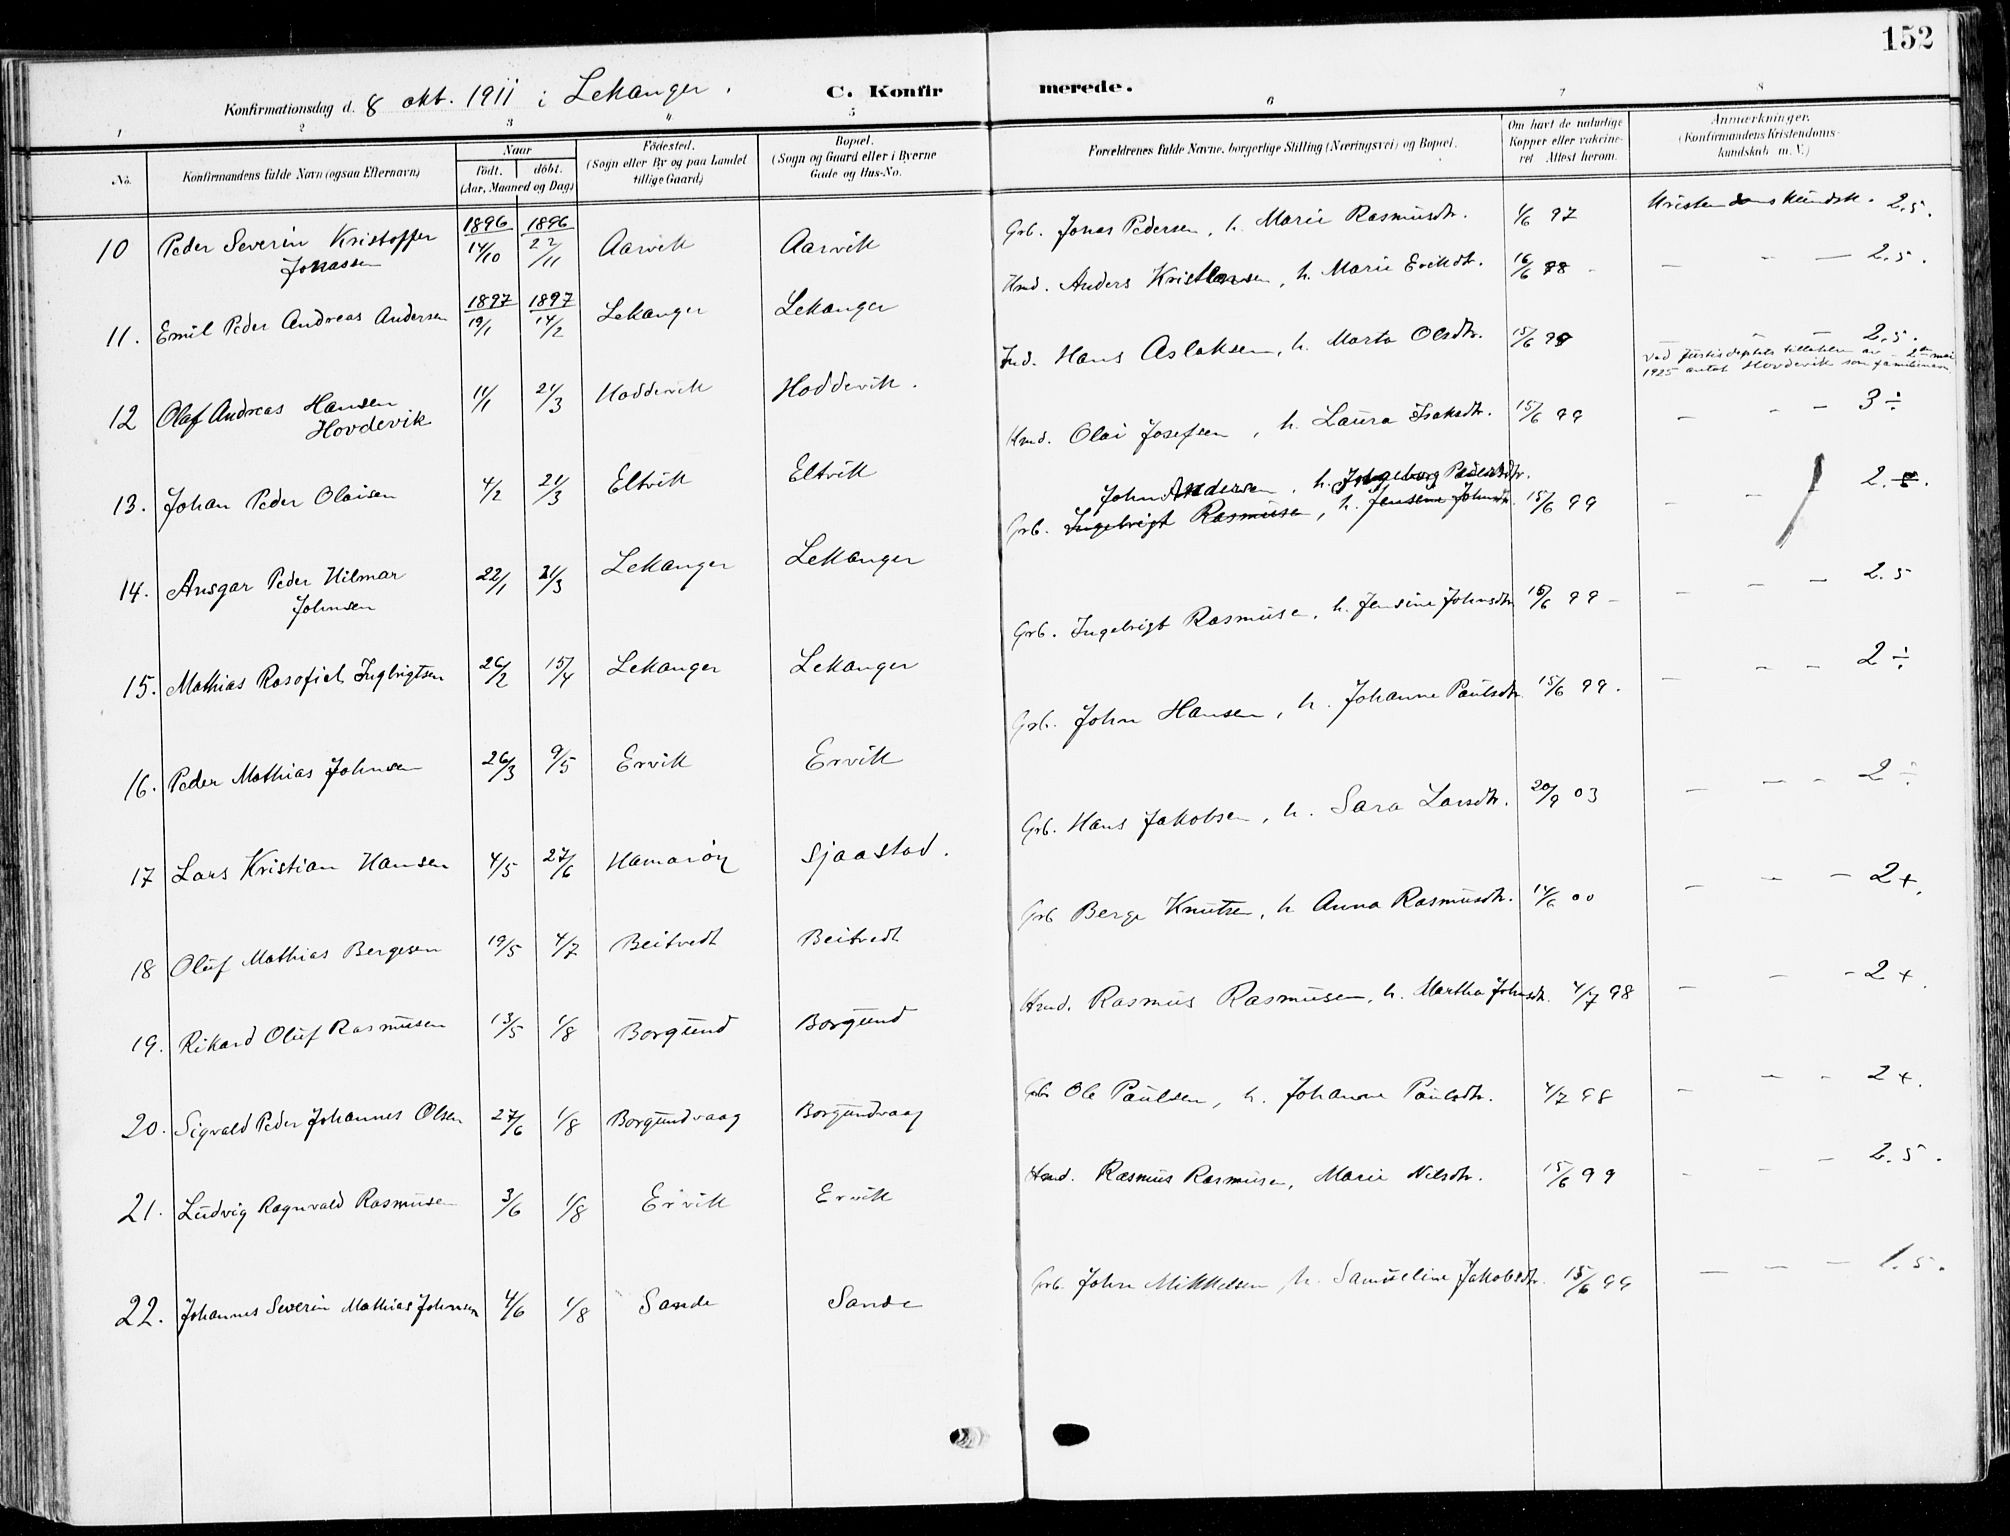 152
Konfirmationsdag d. 8 okt. 1911 i Lekanger. C. Konfirmerede.
1 2 3 4 5 6 7 8
No.
Konfirmandens fulde Navn (ogsaa Efternavn)
Naar
födt. döbt.
(Aar, Maaned og Dag)
Födested.
(Sogn eller By og paa Landet
tillige Gaard)
Bopæl.
(Sogn og Gaard eller i Byerne
Gade og Hus-No.
Forældrenes fulde Navne, borgerlige Stilling (Næringsvei) og Bopæl.
Om havt de naturlige
Kopper eller vakcine-
ret Attest herom.
Anmærkninger.
(Konfirmandens Kristendoms-
kundskab m. V.)
10 Peder Severin Kristoffer 1896 14/10 1896 22/11 Aarvik Aarvik Grb. Jonas Pedersen, h. Marie Rasmusdtr. 4/6 97 Kristendomskundsk. 2.5.
Jonassen
11. Emil Peder Andreas Andersen 1897 19/1 1897 14/2 Lekanger Lekanger Hmd. Anders Kristensen, h. Marie Eriksdtr. 16/6 98 - - - 2.5.
12 Olaf Andreas Hansen 11/1 21/3 Hoddevik Hoddevik. Ind. Hans Aslaksen, h. Marta Olsdtr. 15/6 99 - - - 2.5.
Hovdevik
Ved Justisdeptets tillatelse av 2 mai
1925 antat Hovdevik som familienavn
13. Johan Peder Olaisen 4/2 21/3 Eltvik Eltvik Hmd. Olai Josefsen, h. Laura Isaksdtr. 15/6 99 - - - 3 ÷
John Andersen, h. Ingeborg Pedersdtr.
14. Ansgar Peder Hilmar 22/1 21/3 Lekanger Lekanger Grb. Ingebrigt Rasmussen, h. Jensine Johnsdtr. 15/6 99 - - 2.5.
Johnsen
15. Mathias Rosofiel Ingbrigtsen 26/2 15/4 Lekanger Lekanger Grb. Ingebrigt Rasmussen, h. Jensine Johnsdtr 15/6 99 - - - - 2.5
16. Peder Mathias Johnsen 26/3 9/5 Ervik Ervik Grb. John Hansen, h. Johanne Paulsdtr. 15/6 99. - - - 2 ÷
17 Lars Kristian Hansen 4/5 27/6 Hamarøy Sjaastad. Grb. Hans Jakobsen, h. Sara Larsdtr. 20/9 03 - - - 2 ÷
18 Oluf Mathias Bergesen 19/5 4/7 Beitvedt Beitvedt Grb Berge Knutsen, h Anna Rasmusdtr. 14/6 00 - - - 2+.
19. Rikard Oluf Rasmusen 13/5 1/8 Borgund Borgund Hmd. Rasmus Rasmusen, h. Martha Johnsdtr. 4/7 98 - - - 2+.
20. Sigvald Peder Johannes Olsen 27/6 1/8 Borgundvaag Borgundvaag Grb Ole Paulsen, h. Johanne Paulsdtr. 4/7 98 - - - 2+.
21. Ludvig Ragnvald Rasmusen 3/6 1/8 Ervik Ervik Hmd. Rasmus Rasmusen, Marie Nilsdtr. 15/6 99 - - - 2.5.
22. Johannes Severin Mathias Johnsen 4/6 1/8 Sande Sande Grb. John Mikkelsen, h. Samueline Jakobsdtr. 15/6 99 - - - 1.5.